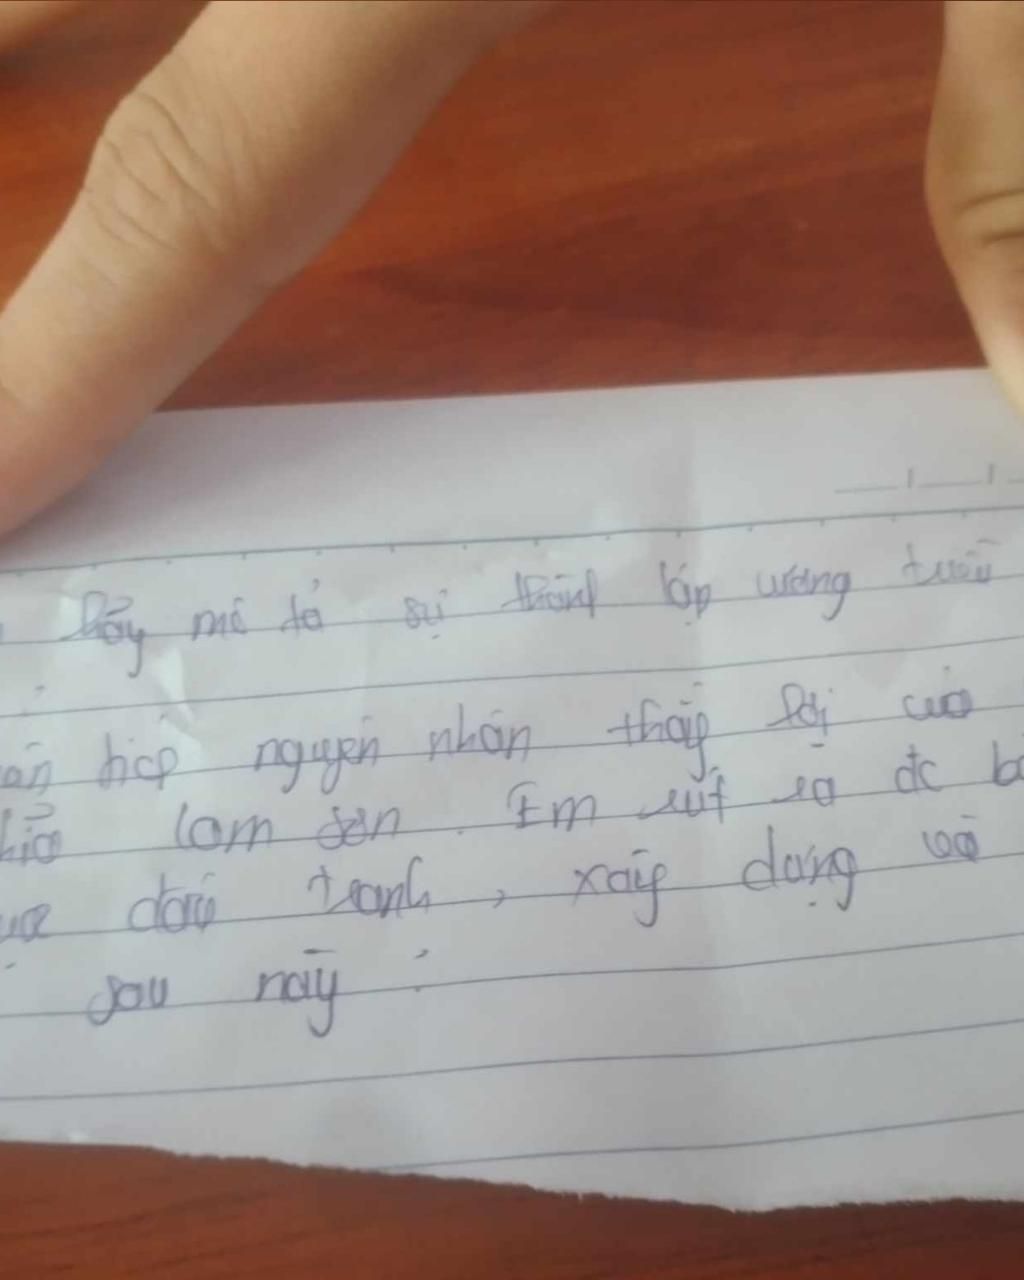 Hãy mô tả sự thành lập vương triều
nguyên nhân thắng lợi của
lam sơn. Em rút ra đc
tranh, xây dựng và
sau này